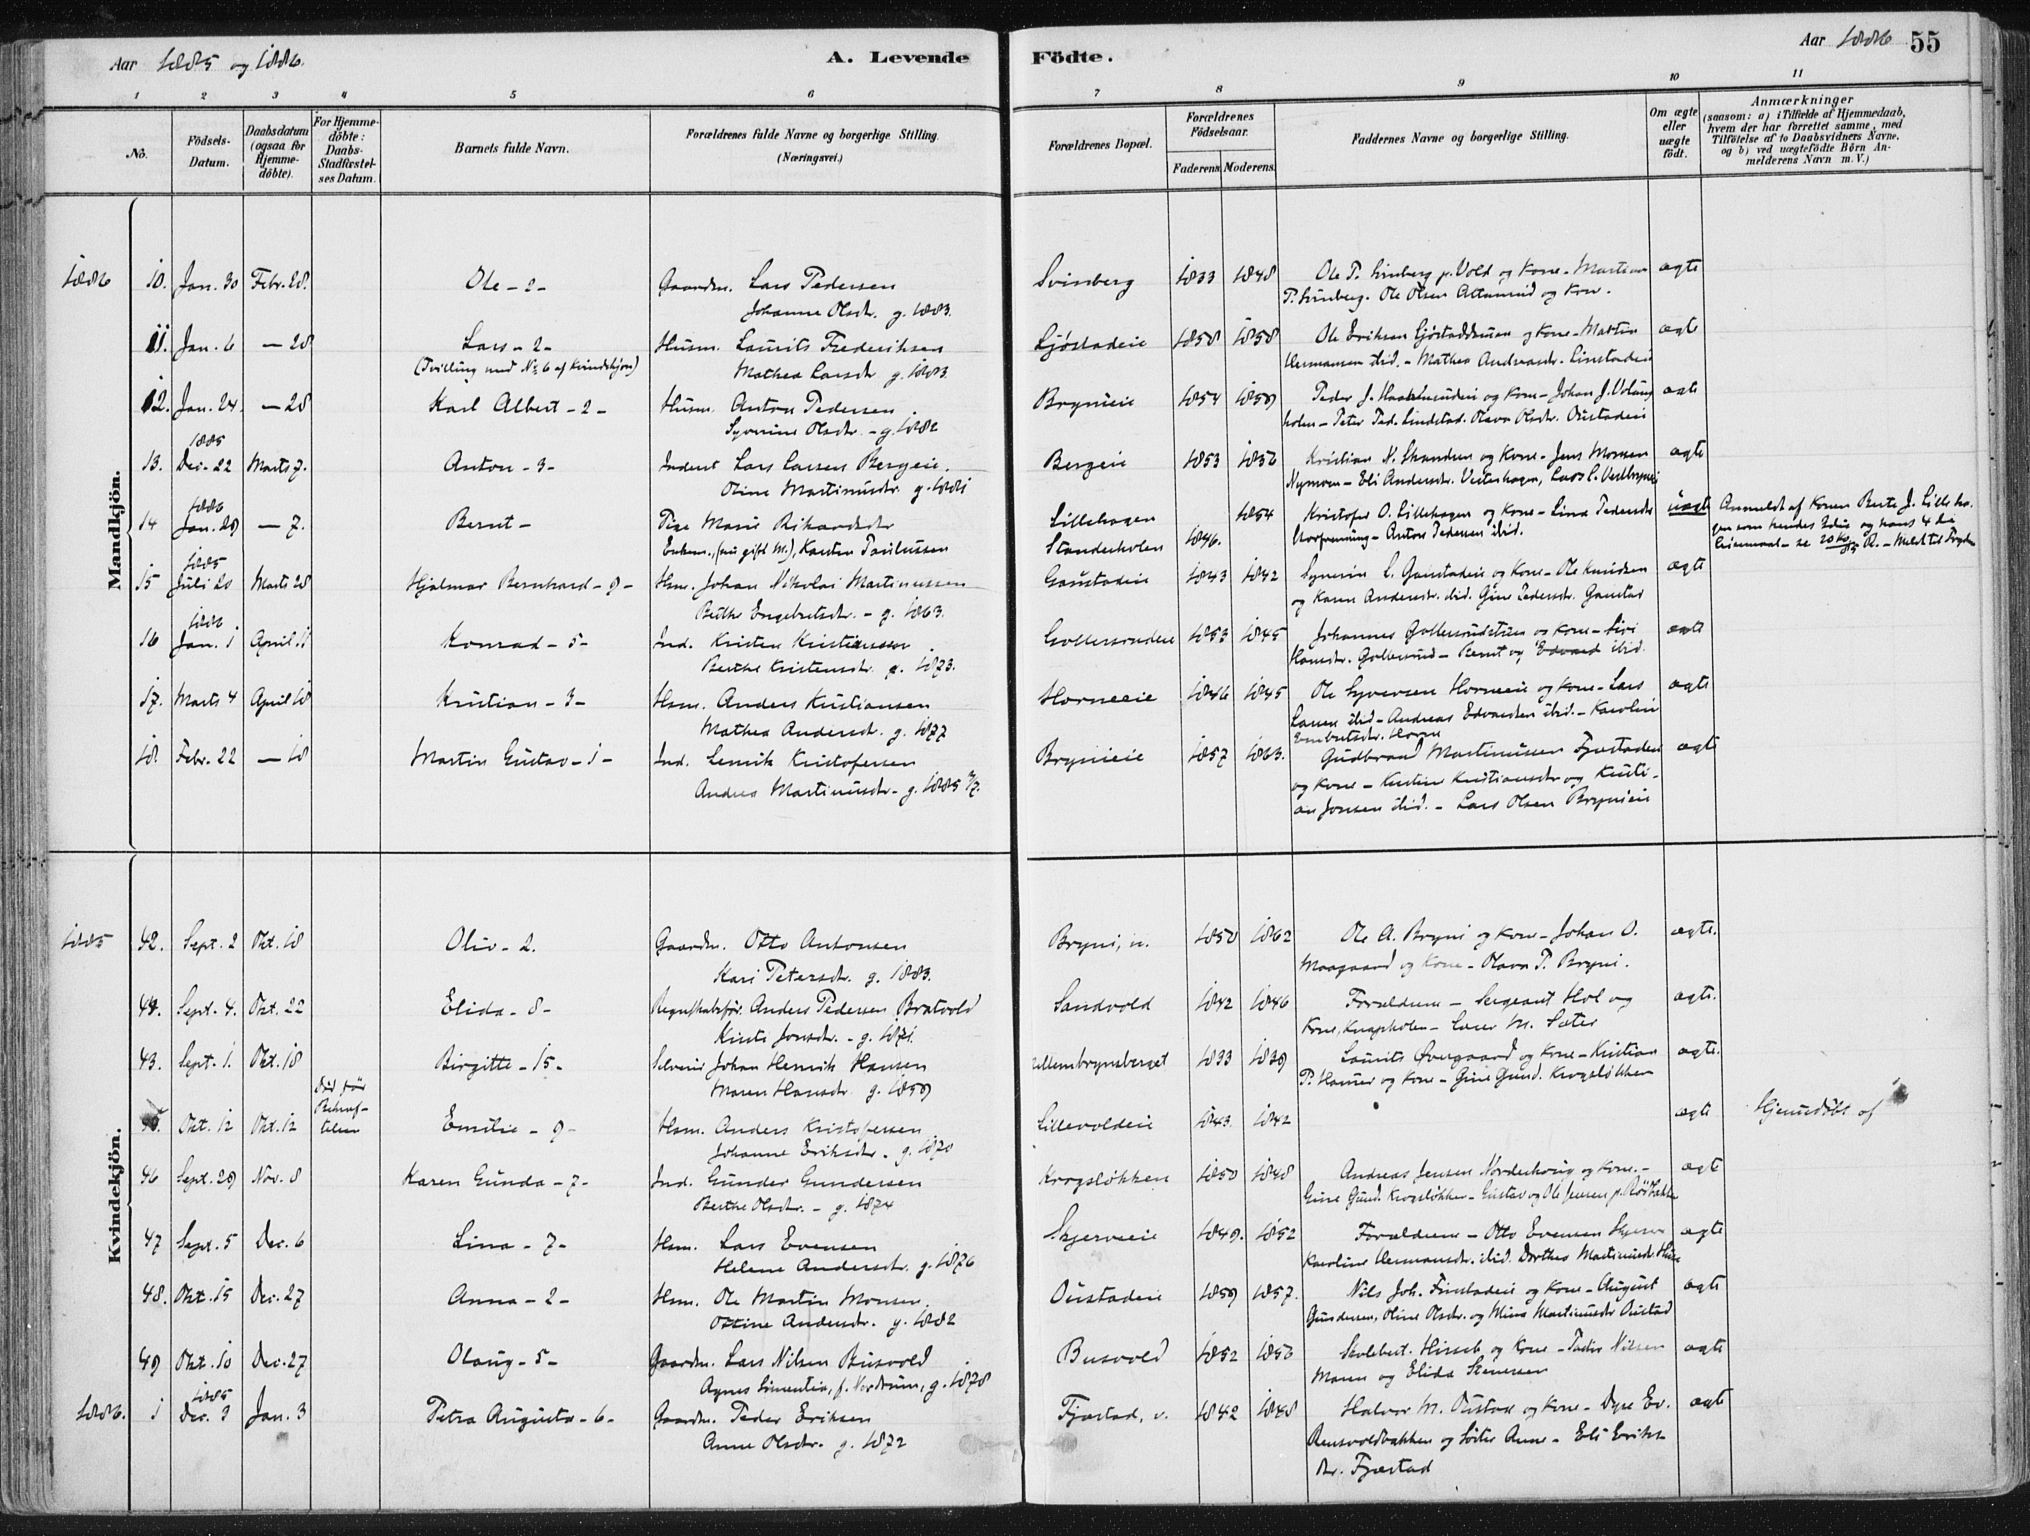 Aar 1885 og 1886. A. Levende Födte. Aar 1886 55
1 2 3 4 5 6 7 8 9 10 11
No. Födsels-Datum. Daabsdatum (ogsaa for Hjemmedöbte). For Hjemmedöbte: Daabs-Stadfæstelses Datum. Barnets fulde Navn. Forældrenes fulde Navne og borgerlige Stilling. (Næringsvei.) Forældrenes Bopæl. Forældrenes Födselsaar. Faderens Moderens. Faddernes Navne og borgerlige Stilling. Om ægte eller uægte födt. Anmærkninger (saasom: a) i Tilfælde af Hjemmedaab, hvem der har forrettet samme, med Tilföielse af to Daabsvidners Navne. og b) ved uægtefödte Börn Anmelderens Navn m. V.)
Mandkjön.
1886 10. Jan. 30 Febr. 28. Ole - 2 - Gaardm. Lars Pedersen Svinberg 1833 1848 Ole P. Svinberg p. Vold og Kone - Martin ægte
Johanne Olsdr. g. 1883. P. Svinberg. Ole Olsen og Kone.
11. Jan. 6 — 28 Lars - 2 - Husm. Laurits Frederiksen Gjöstadeie 1858 1858 Ole Eriksen og Kone - Martin ægte
(Tvilling med No 6 af Kvindekjön) Mathea Larsdr g. 1883. Hermansen ibid. - Mathea Andreasdr.
12. Jan. 24. — 28 Karl Albert - 2 - Husm. Anton Pedersen Brynieie 1854 1859 Peder J. og Kone - Johan J.
Syverine Olsdr. - g. 1882 Peter Ped. Lindstad. Olava Olsdr. Oustadeie ægte
13. 1885 Dec. 22 Marts 7. Anton - 3 - Inderst Lars Larsen Bergeie. Bergeie 1853 1856 Kristian N. og Kone - Jens Monsen ægte
Oline Martinusdr. g. 1881 Eli Andersdr. Vesterhagen, Lars L.
14 1886 Jan. 29 — 7. Bernt - Pige Marie Rikardsdr Lillehagen 1854 Kristofer O. Lillehagen og Kone - Lina Pedersdr uægte Anmeldt af Konen Berte J.
Enkem. (nu gift M.), Karsten Paulussen Standerholen 1846. Anton Pedersen ibid.
15 1885 Juli 20 Marts 28 Hjalmar Bernhard - 9 - Hsm. Johan Nikolai Martinussen Gaustadeie 1843 1842 Syverin L. Gaustadeie og Kone - Ole Knudsen ægte
Berthe Engebretsdr. - g. 1863. og Karen Andersdr. ibid. Gine Pedersdr. Gaustad
16 1886 Jan. 1 April 11 Konrad - 5 - Ind. Kristen Kristiansen Gollersrudeie 1853 1845 Johannes og Kone - Siri ægte
Berthe Kristensdr. g. 1873. Hansdr. Gollersrud - Bernt og Edvard ibid.
17. Marts 4 April 18 Kristian - 3 - Hsm. Anders Kristiansen Horneeie 1846 1845 Ole Syversen Horneeie og Kone - Lars ægte
Mathea Andersdr. g. 1877 Larsen ibid - Andreas Edvardsen ibid. - Karoline
Embretsdr. Horne
18. Febr. 22 — 18 Martin Gustav - 1 - Ind. Henrik Kristofersen Brynieie 1857 1863. Gudbrand Martinussen Fjæstadeie ægte
Andrea Martinusdr - g. 1885 og Kone - Kristine Kristiansdr og Kristi-
an Jensen ibid. - Lars Olsen Brynieie
Kvindekjön.
1885 42. Sept. 2 Okt. 18 Oliv - 2. Gaardm. Otto Antonsen Bryni, n. 1850 1862 Ole A. Bryni og Kone - Johan O. ægte.
Kari Petersdr. g. 1883. Moagaard og Kone - Olava P. Bryni.
44. Sept. 4. Okt. 22 Elida - 8 - Regnskabsför. Anders Pedersen Bratvold Sandvold 1842 1846 Forældrene - Sergeant Hol og ægte.
Kirsti Jonsdr. - g. 1871. Kone, Knapholen - Lars M. Sæter
43. Sept. 1. Okt. 18 Birgitte - 15 - Selveier Johan Henrik Hansen 1833 1839 Laurits Övergaard og Kone - Kristian ægte.
Maren Hansdr. g. 1859 P. Hamer og Kone - Gine Gund. Krogslökken
Okt. 12 Okt. 12 Död för Bekræftelsen Emilie - 9 - Hsm. Anders Kristofersen Lillevoldeie 1843. 1842 ægte Hjemmedöbt af
Johanne Eriksdr. - g. 1870
46 Sept. 29 Nov. 8 Karen Gunda - 7 - Ind. Gunder Gundersen Krogslökken 1850 1848 Andreas Jensen Nordenhoug og Kone. - ægte
Berthe Olsdr. - g. 1874 Gine Gund. Krogslökken - Gustav og Ole Jensen p. Rösbakken
47 Sept. 5 Dec. 6 Lina - 7 - Hsm. Lars Evensen Skjerveeie 1849. 1852 Forældrene - Otto Evensen Skjerve ægte
Helene Andersdr. g. 1876 Karoline Hermansdr. ibid. Dorthea Martinusdr.
48. Okt. 15 Dec. 27 Anna - 2 - Hsm. Ole Martin Monsen Oustadeie 1859 1857. Nils Joh. Finstadeie og Kone - August ægte
Ottine Andersdr. g. 1882 Gundersen, Oline Olsdr. og Mina Martinusdr Oustad
49 Okt. 10 Dec. 27 Olaug - 5 - Gaardm. Lars Nilsen Busvold Busvold 1852 1856 Skolebest. Hirsch og Kone - Peder Nilsen ægte
Agnes Simentia, f. Nordrum, g. 1878 Maren og Elida Simensen
1886. 1 1885 Dec. 3 Jan. 3 Petra Augusta - 6 - Gaardm. Peder Eriksen Fjæstad, v. 1842 1848 Halvor M. Oustad og Kone - Dyre Ev. ægte
Anne Olsdr. g. 1872 Rensvoldbakken og Söster Anne - Eli Eriks-
dr. Fjæstad